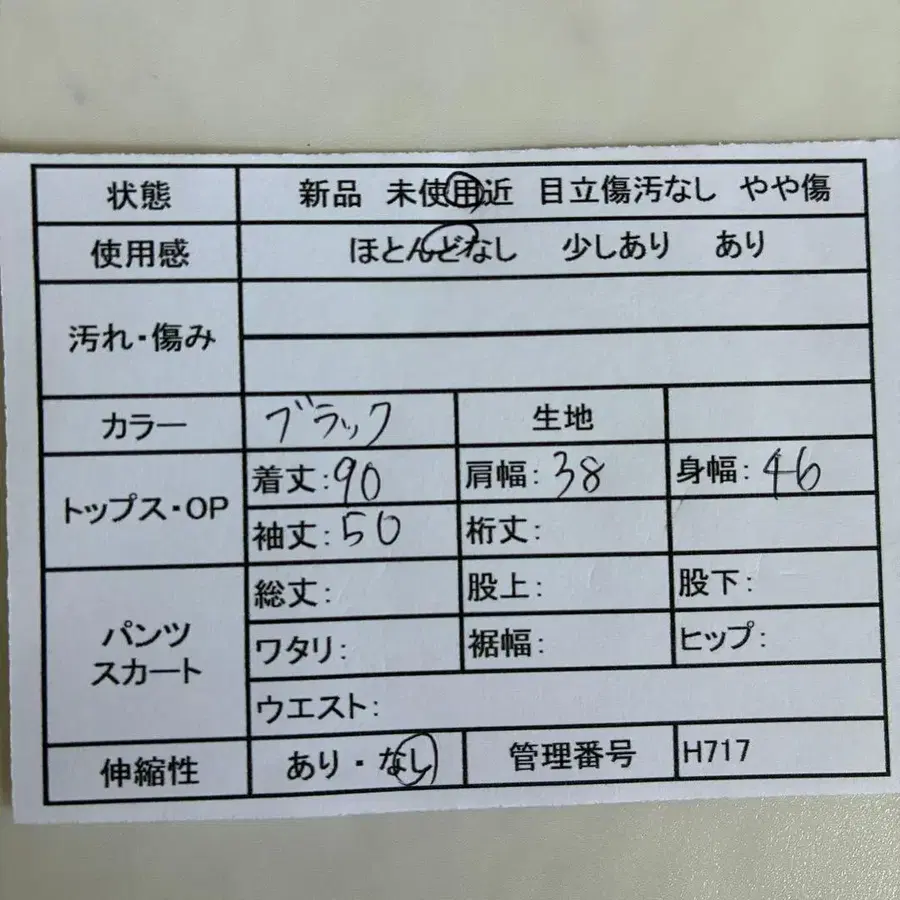 状態 新品 未使用近 目立傷汚なし やや傷
使用感 ほとんどなし 少しあり あり
汚れ・傷み
カラー ブラック 生地
トップス・OP 着丈:90 肩幅:38 身幅:46
袖丈:50 裄丈:
パンツ スカート 総丈: 股上: 股下:
ワタリ: 裾幅: ヒップ:
ウエスト:
伸縮性 あり・なし 管理番号 H717